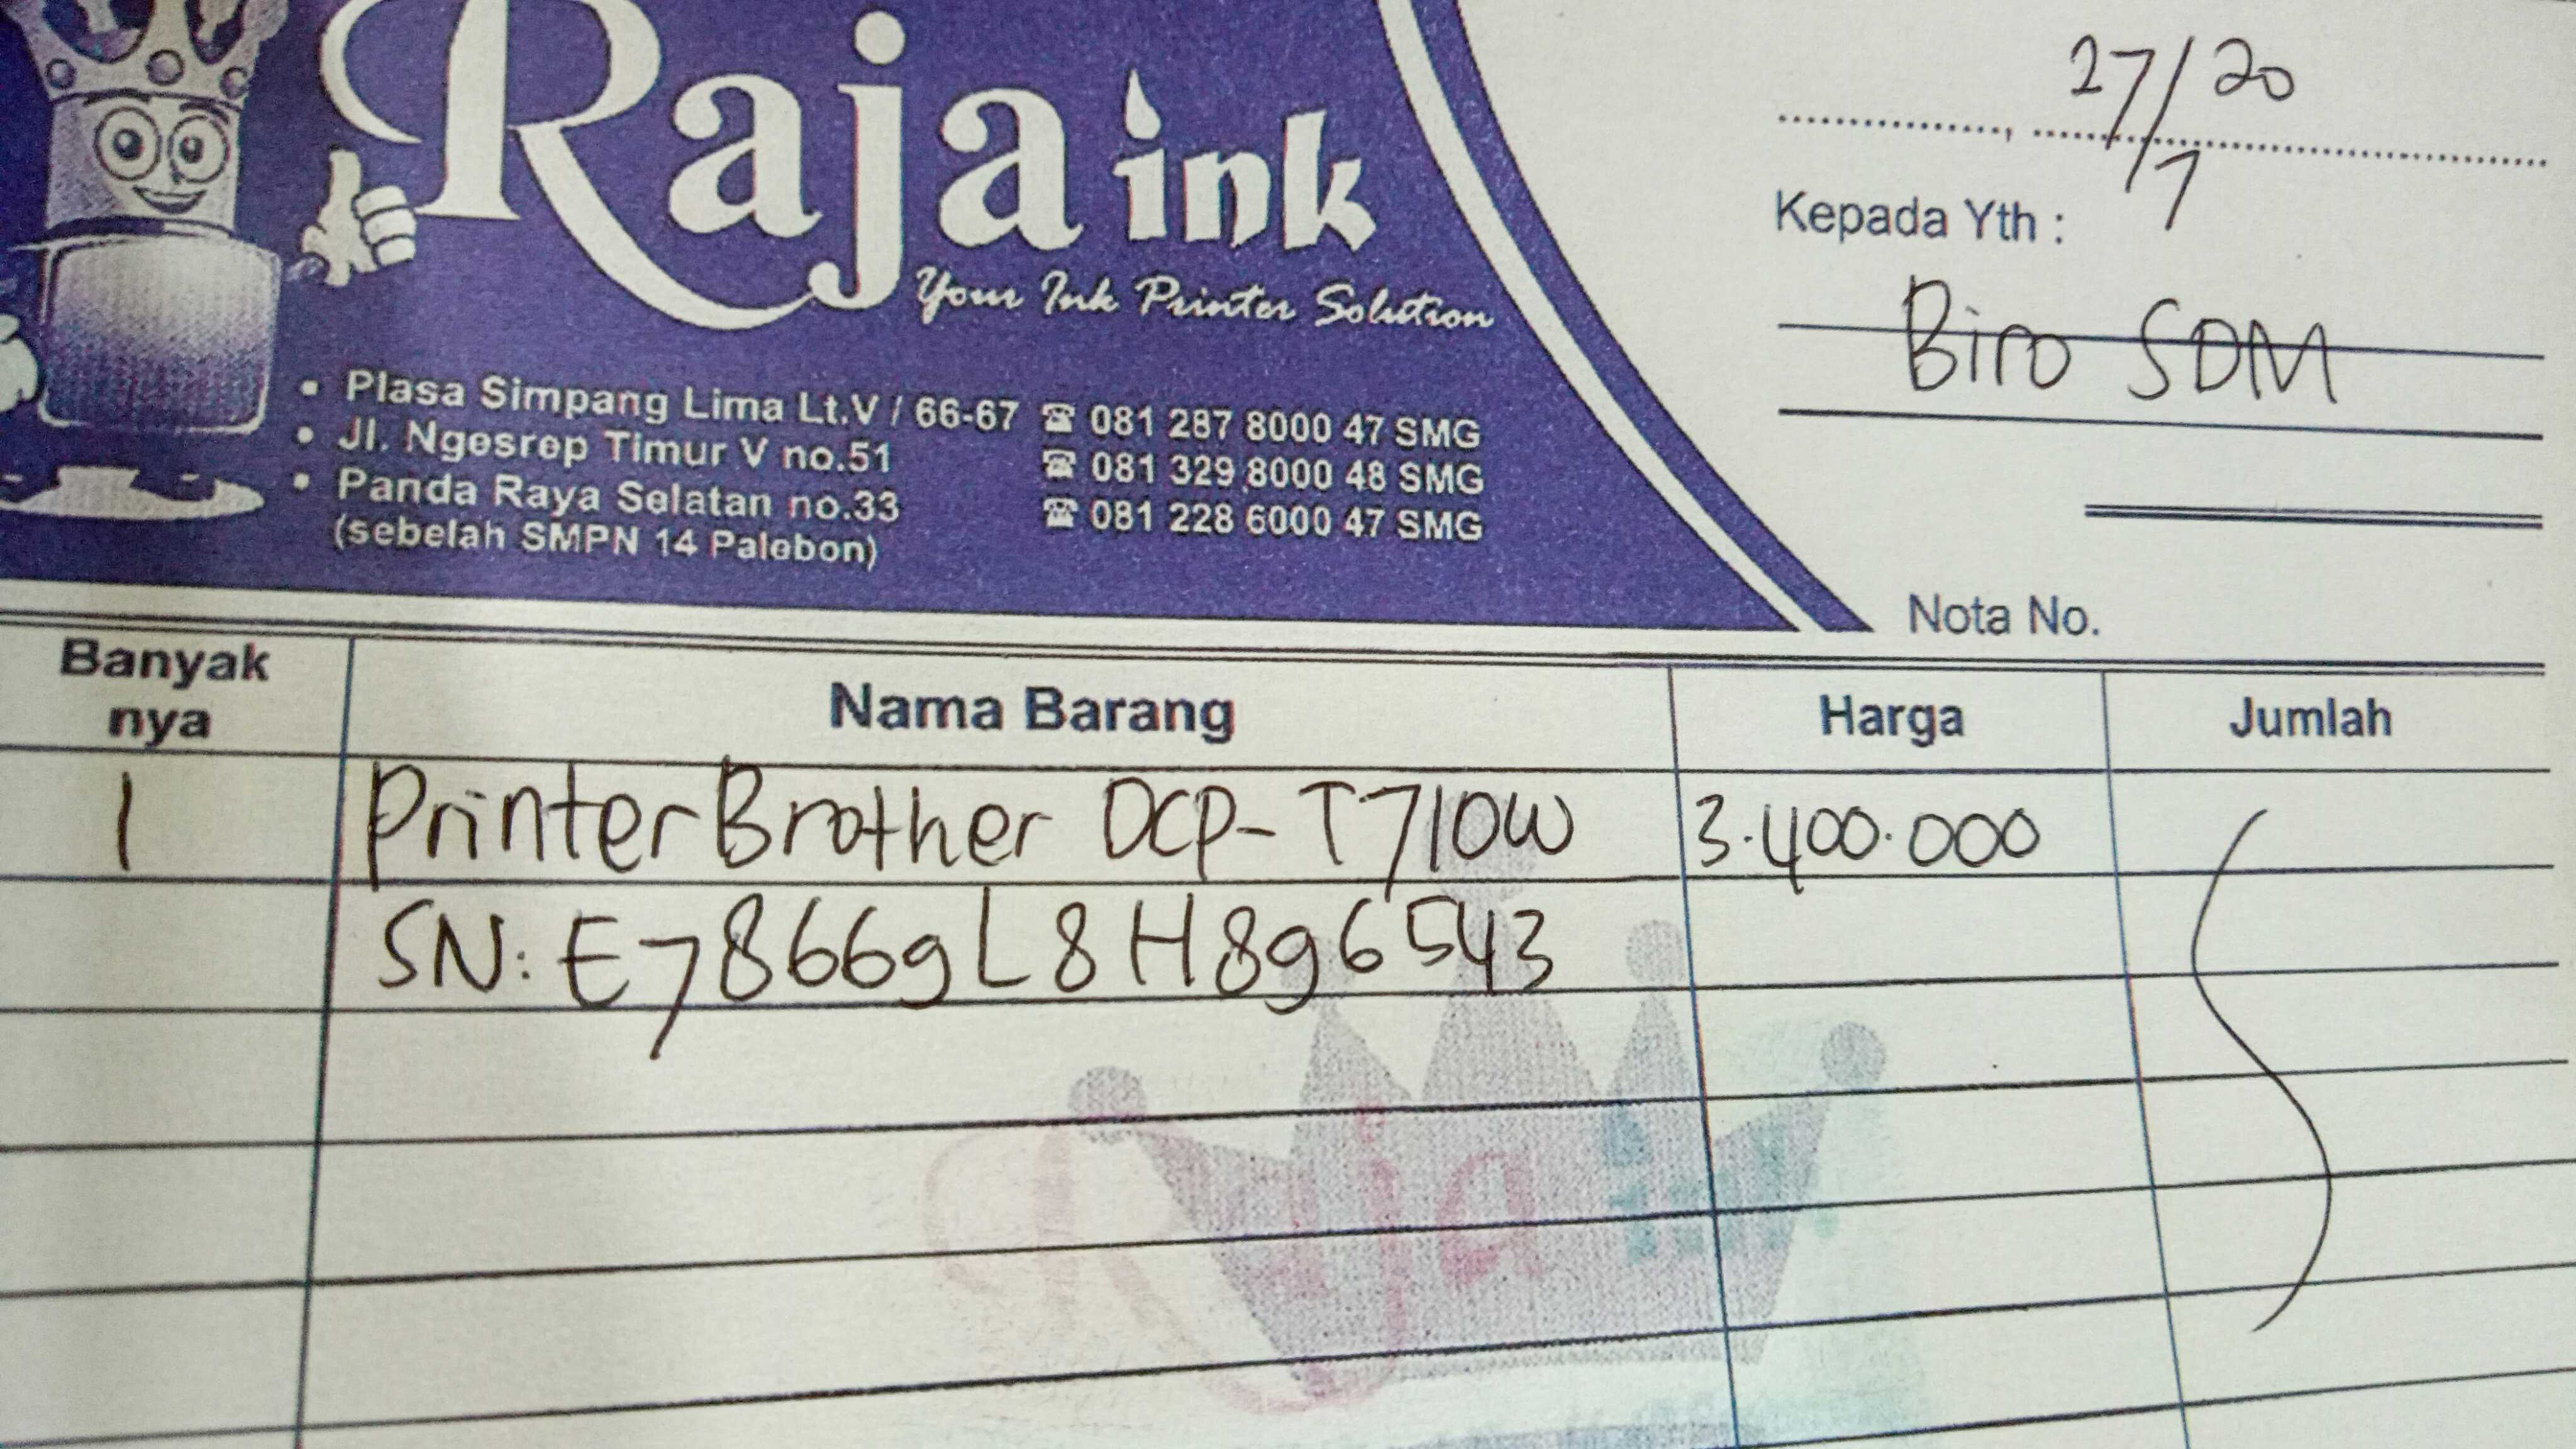 Raja ink
Your Ink Printer Solution
• Plasa Simpang Lima Lt.V / 66-67 ☎ 081 287 8000 47 SMG
• Jl. Ngesrep Timur V no.51 ☎ 081 329 8000 48 SMG
• Panda Raya Selatan no.33 ☎ 081 228 6000 47 SMG
(sebelah SMPN 14 Palebon)
27/20
/7
Kepada Yth :
Biro SDM
Nota No.
Banyak
nya
Nama Barang
Harga
Jumlah
1 Printer Brother DCP-T710W 3.400.000
SN: E78669L8H896543
Raja ink